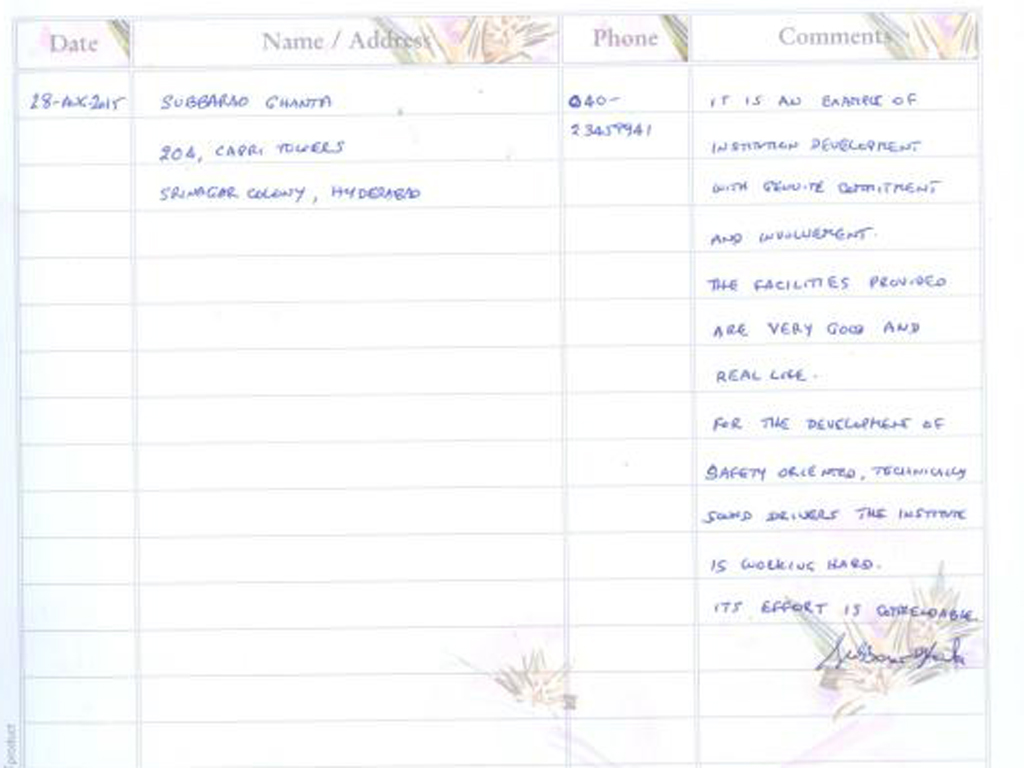 Date Name / Address Phone Comments
28-AUG-2015 SUBBARAO GHANTA 040- IT IS AN EXAMPLE OF
23459941
204, CAPRI TOWERS INSTITUTION DEVELOPMENT
SRINAGAR COLONY, HYDERABAD WITH GENUINE COMMITMENT
AND INVOLVEMENT.
THE FACILITIES PROVIDED
ARE VERY GOOD AND
REAL LIFE.
FOR THE DEVELOPMENT OF
SAFETY ORIENTED, TECHNICALLY
SOUND DRIVERS THE INSTITUTE
IS WORKING HARD.
ITS EFFORT IS COMMENDABLE
product